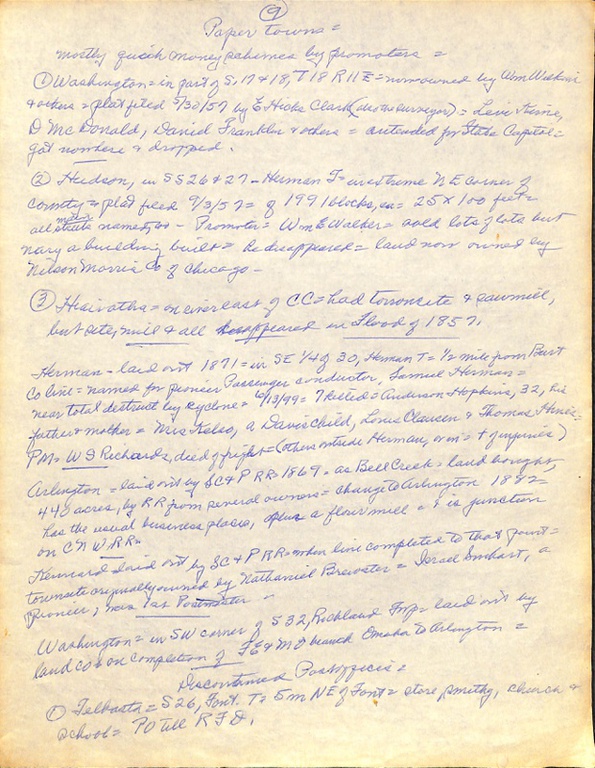 9
Paper towns =
mostly quick money schemes by promoters =
① Washington = in part of S, 17 & 18, T 18 R 11 E = now owned by Wm Wilkins
& others = plat filed 5/30/57 by E Hicks Clark (also the surveyor) = Levi Kline,
D McDonald, David Franklin & others = intended for State Capitol =
got nowhere & dropped.
② Hudson, in SS 26 & 27 - Herman T = in extreme NE corner of
county = plat filed 9/3/57 = of 1991 blocks, = 25 x 100 feet =
all streets named, too - Promoter = Wm E Walker = sold lots of lots but
nary a building built = he disappeared = land now owned by
Nelson Morris Co of Chicago -
③ Hiawatha = on river east of CC = had townsite & sawmill,
but site, mill & all disappeared in Flood of 1857.
Herman - laid out 1871 = in SE 1/4 of 30, Herman T = 1/2 mile from Burt
Co line = named for pioneer Passenger conductor, Samuel Herman =
near total destruct by cyclone = 6/13/99 = 7 killed = Anderson Hopkins, 32, his
father & mother = Mrs Kelso, a Davis child, Louis Clausen & Thomas
PM = W S Richards, died of fright = (others outside Herman, or in = + of injuries)
Arlington = laid out by SC & P RR = 1869 = as Bell Creek = land bought,
440 acres, by RR, from several owners = change to Arlington 1882 =
has the usual business places, plus a flour mill = & is junction
on C N W RR =
Kennard laid out by SC & P RR = when line completed to that point =
townsite originally owned by Nathaniel Brewster = Israel Swihart, a
pioneer, was 1st Postmaster -
Washington = in SW corner of S 32, Richland Twp = laid out by
land co = on completion of FE & MV branch Omaha to Arlington =
Discontinued Postoffices =
① Telbasta = S 26, Font. T = 5 m NE of Font = store, smithy, church &
school = PO till R F D.